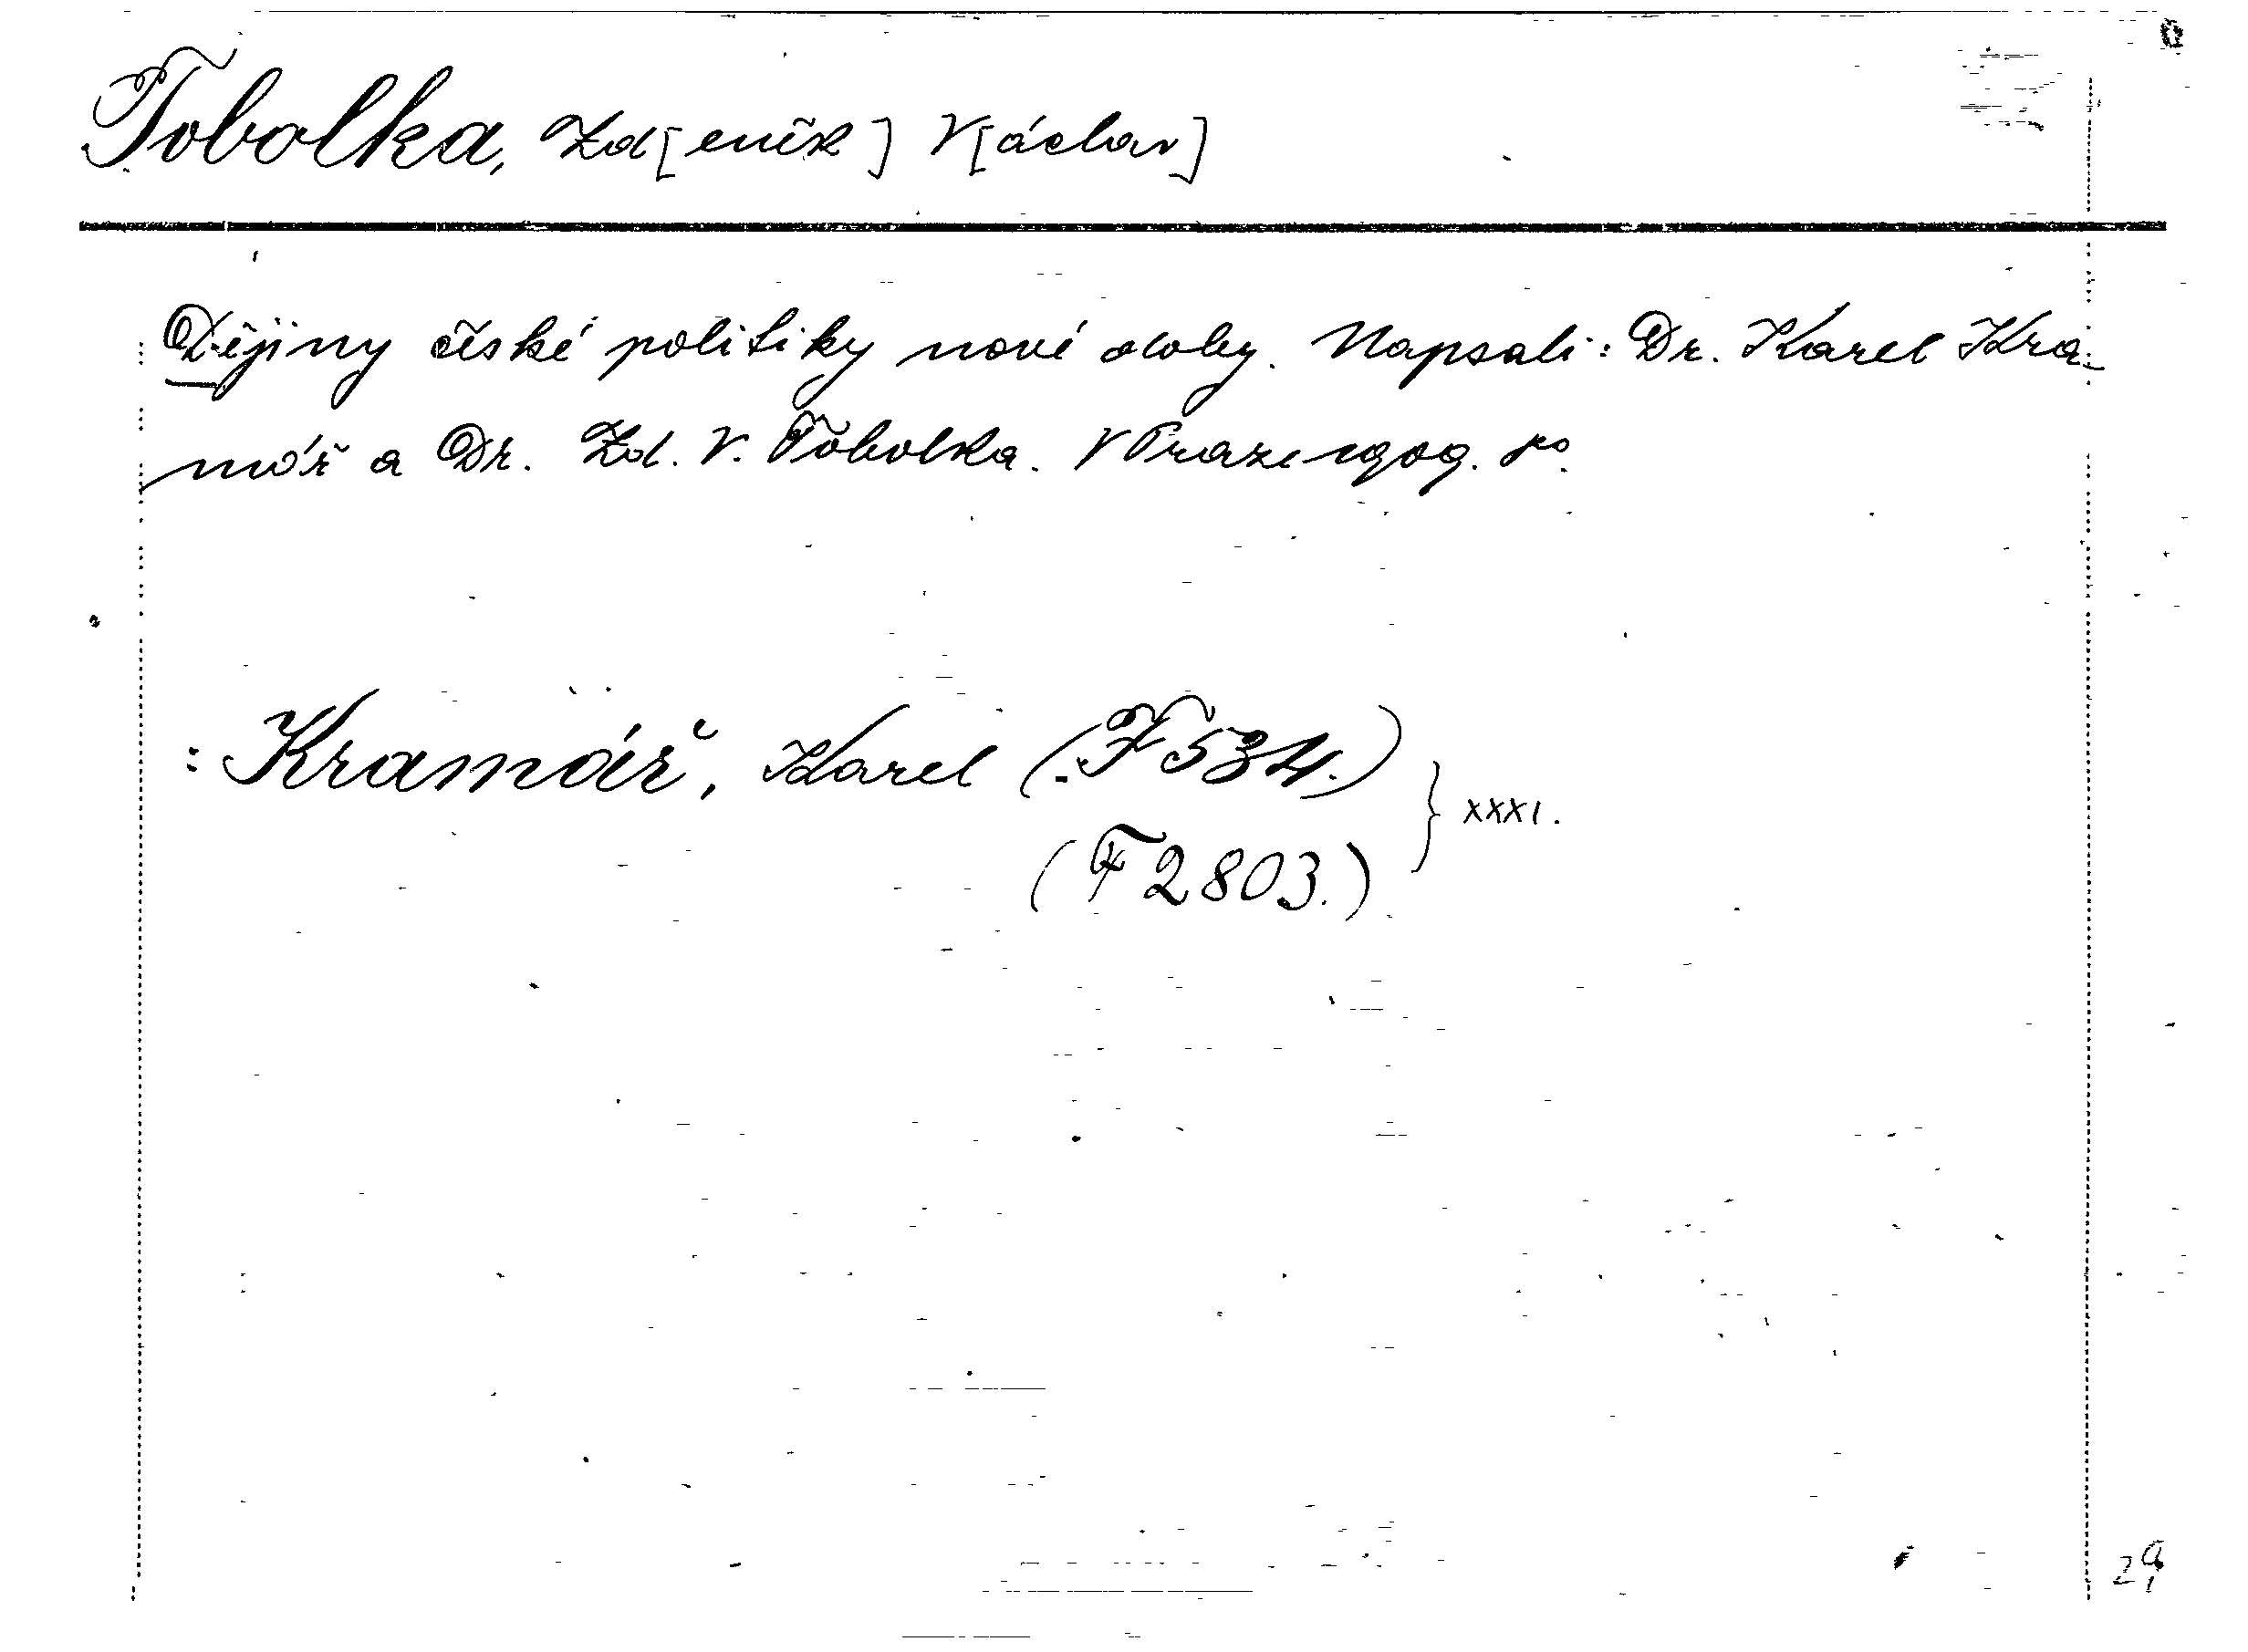 Tobolka, Zd[eněk] V[áclav]
Dějiny české politiky nové doby. Napsali: Dr. Karel Kra-
mář a Dr. Zd. V. Tobolka. V Praze 1909. 8°.
: Kramář, Karel (F 534.)
(F 2803.) } XXXI.